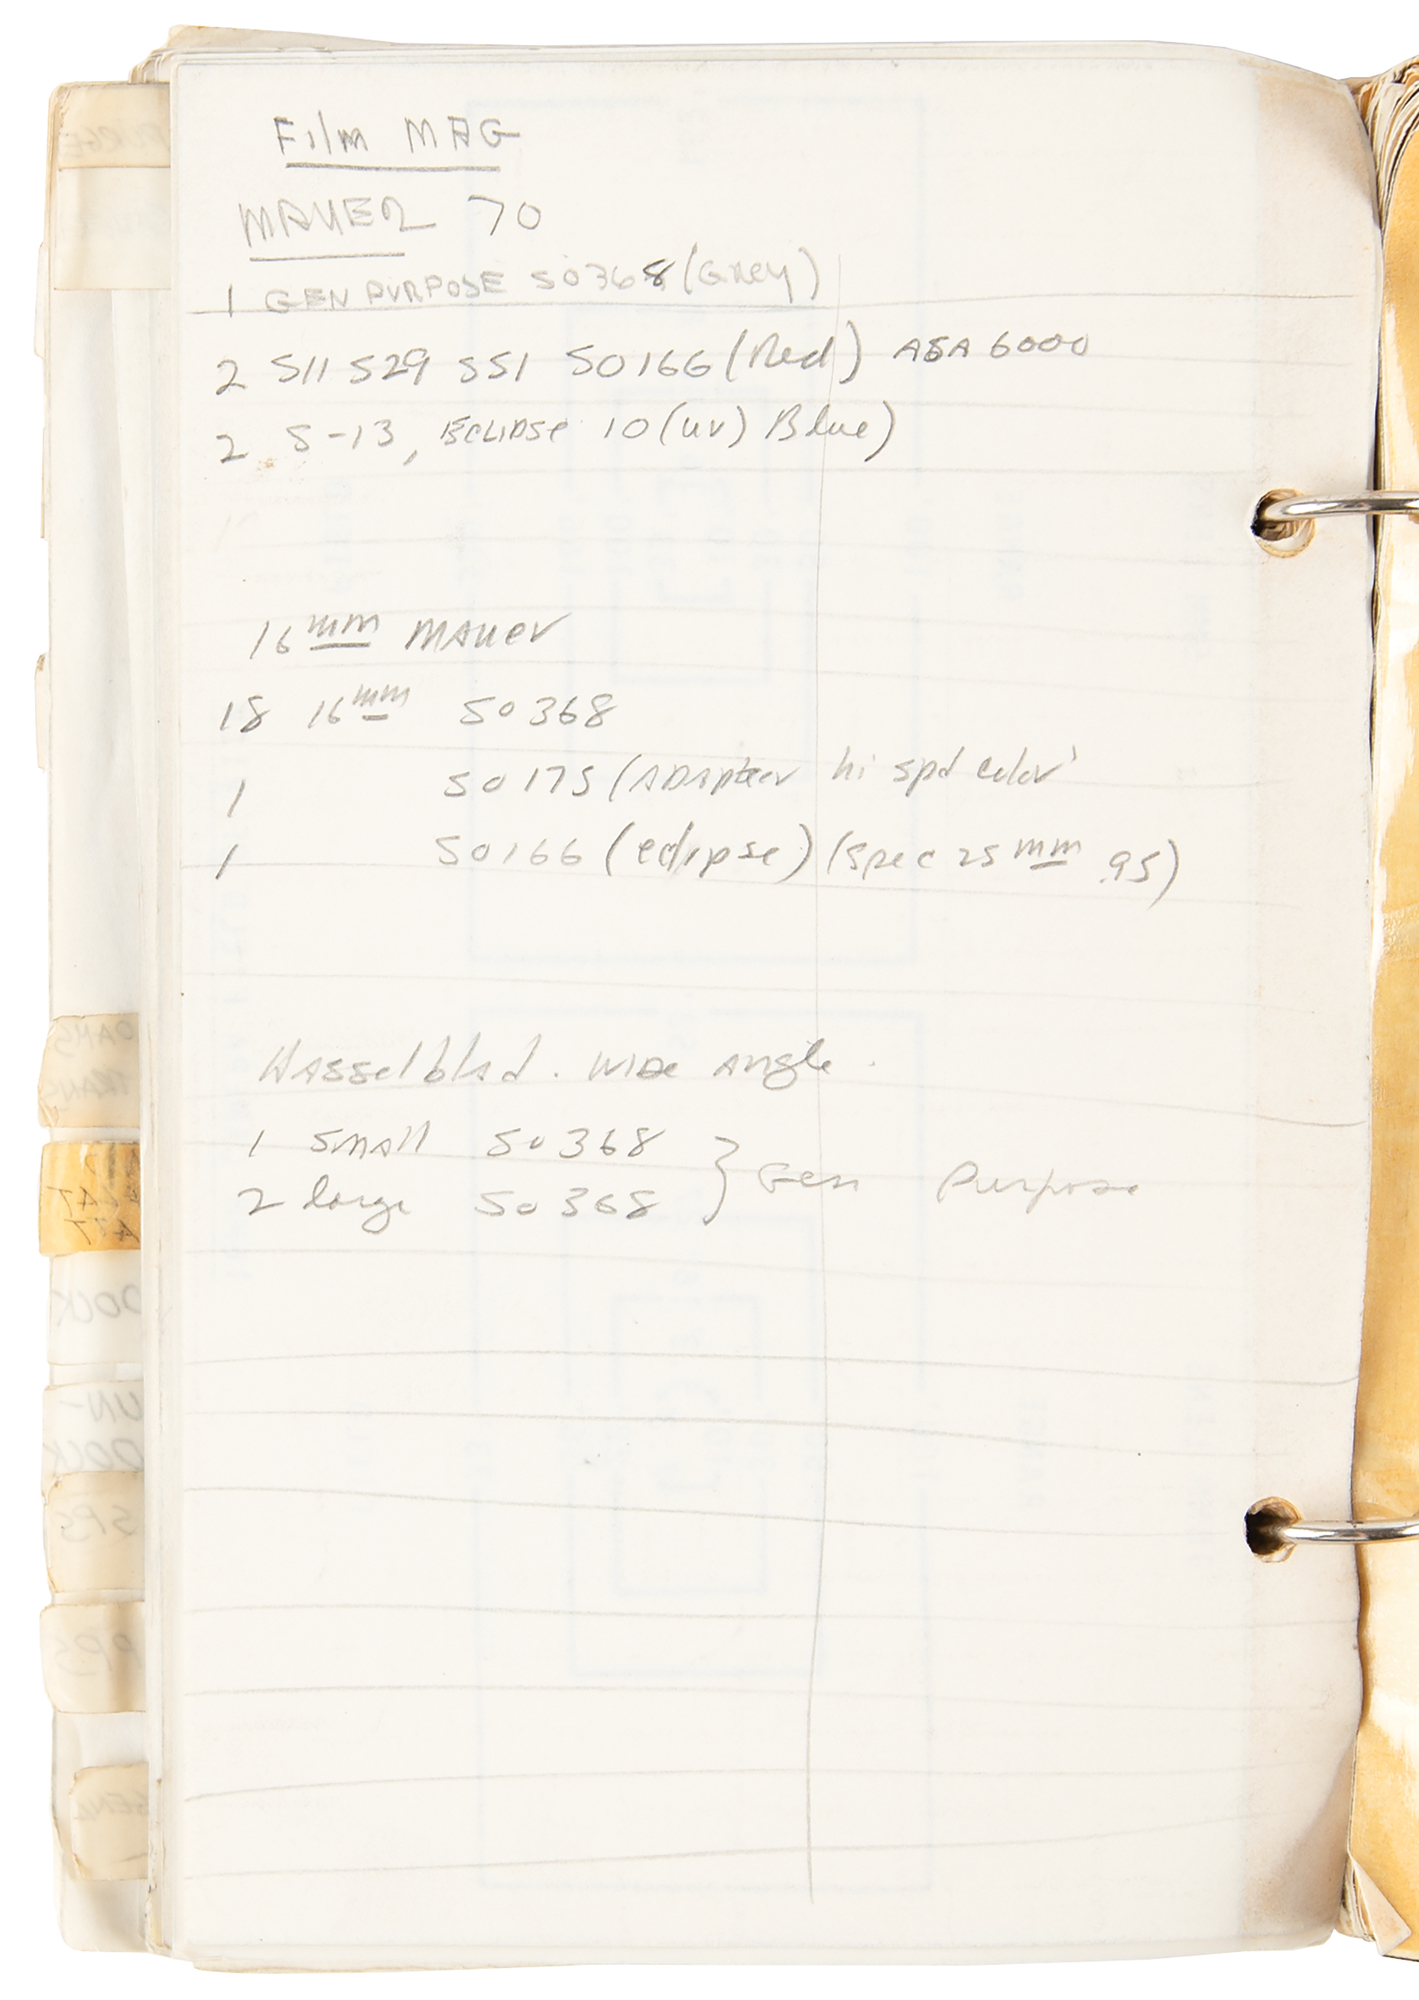 Film MAG
MAUER 70
1 GEN PURPOSE SO368 (Grey)
2 S11 S29 S51 SO166 (Red) ASA 6000
2 S-13, ECLIPSE 10 (UV) Blue)
16 mm MAUer
18 16 mm SO 368
1 SO 175 (ADApter hi spd color)
1 SO166 (eclipse) (spec 25 mm .95)
HAsselblad. WIDe Angle.
1 SmAll SO 368
2 large SO 368 } Gen Purpose
PURGE
OAMS
TRANS
DOCK
UN-
DOCK
SPS
RPS